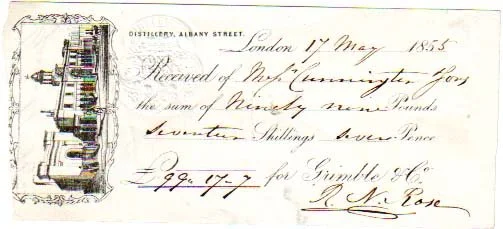 DISTILLERY, ALBANY STREET.
London 17 May 1855
Received of Messrs Cunnington & Sons
the sum of Ninety nine Pounds
seventeen Shillings seven Pence
£99 " 17 - 7 for Grimble & Co
R. N. Rose